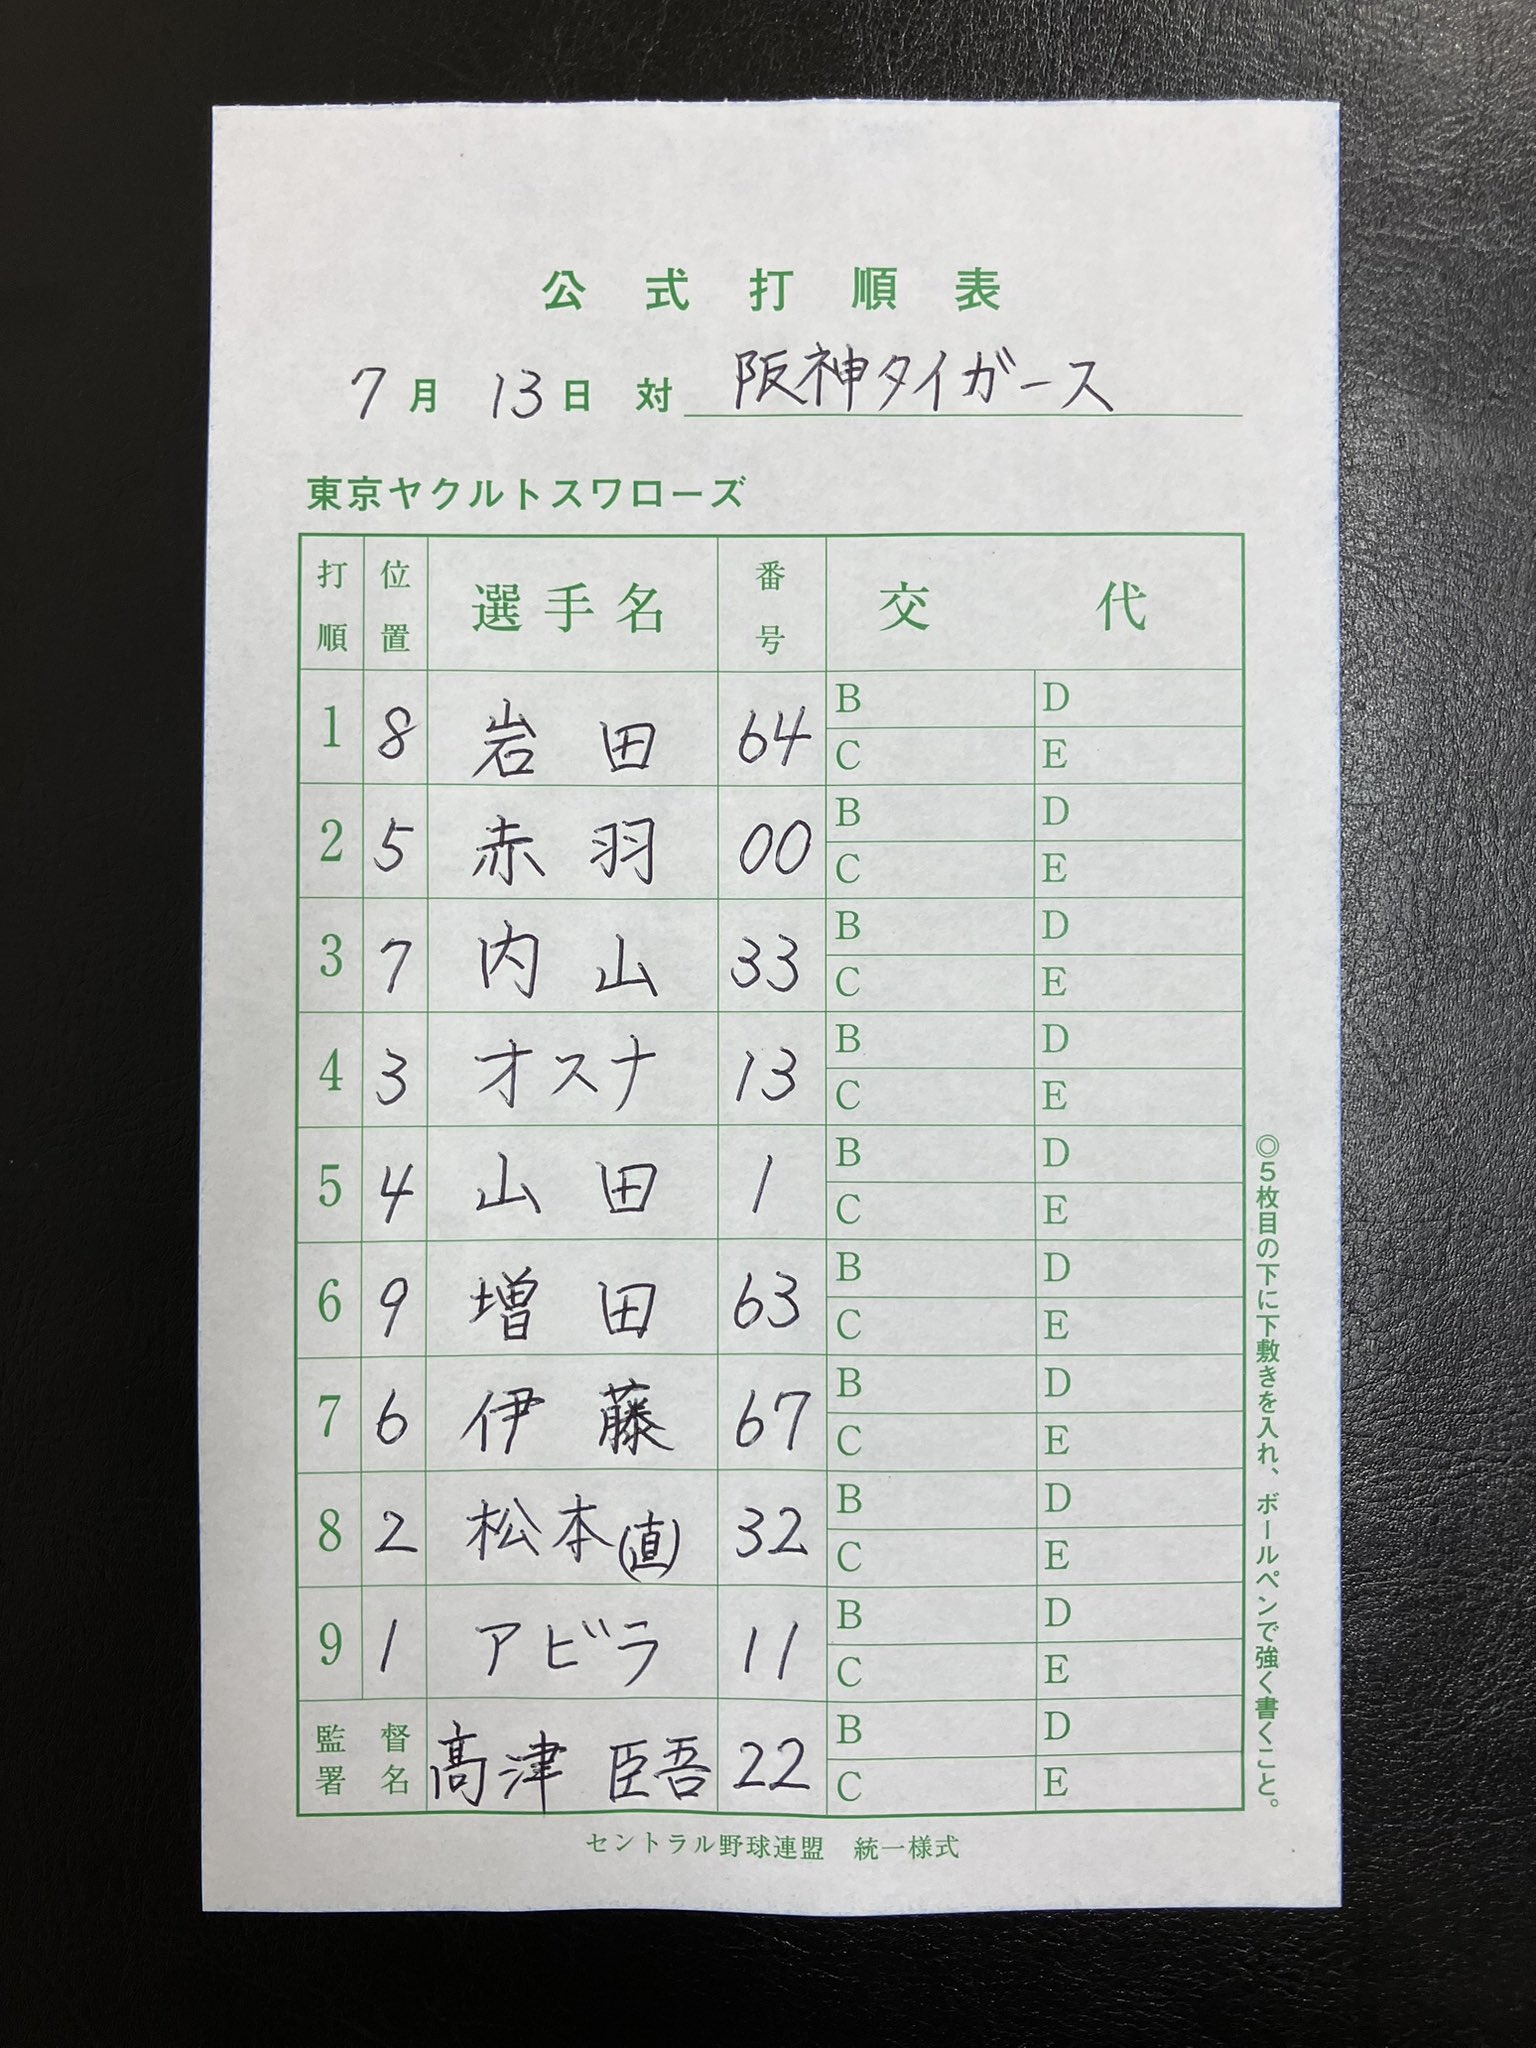 公式打順表
7月 13日 対 阪神タイガース
東京ヤクルトスワローズ
打順 位置 選手名 番号 交代
1 8 岩田 64 B D
C E
2 5 赤羽 00 B D
C E
3 7 内山 33 B D
C E
4 3 オスナ 13 B D
C E
5 4 山田 1 B D
C E
6 9 増田 63 B D
C E
7 6 伊藤 67 B D
C E
8 2 松本(直) 32 B D
C E
9 1 アビラ 11 B D
C E
監督署名 髙津 臣吾 22 B D
C E
◎5枚目の下に下敷きを入れ、ボールペンで強く書くこと。
セントラル野球連盟 統一様式